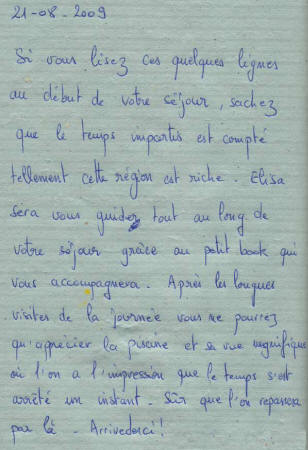 21-08-2009
Si vous lisez ces quelques lignes
au début de votre séjour, sachez
que le temps impartis est compté
tellement cette région est riche. Elisa
sera vous guider tout au long de
votre séjour grâce au petit book qui
vous accompagnera. Après les longues
visites de la journée vous ne pourrez
qu'apprécier la piscine et sa vue magnifique
où l'on a l'impression que le temps s'est
arrêté un instant. Sûr que l'on repassera
par là. Arrivederci!